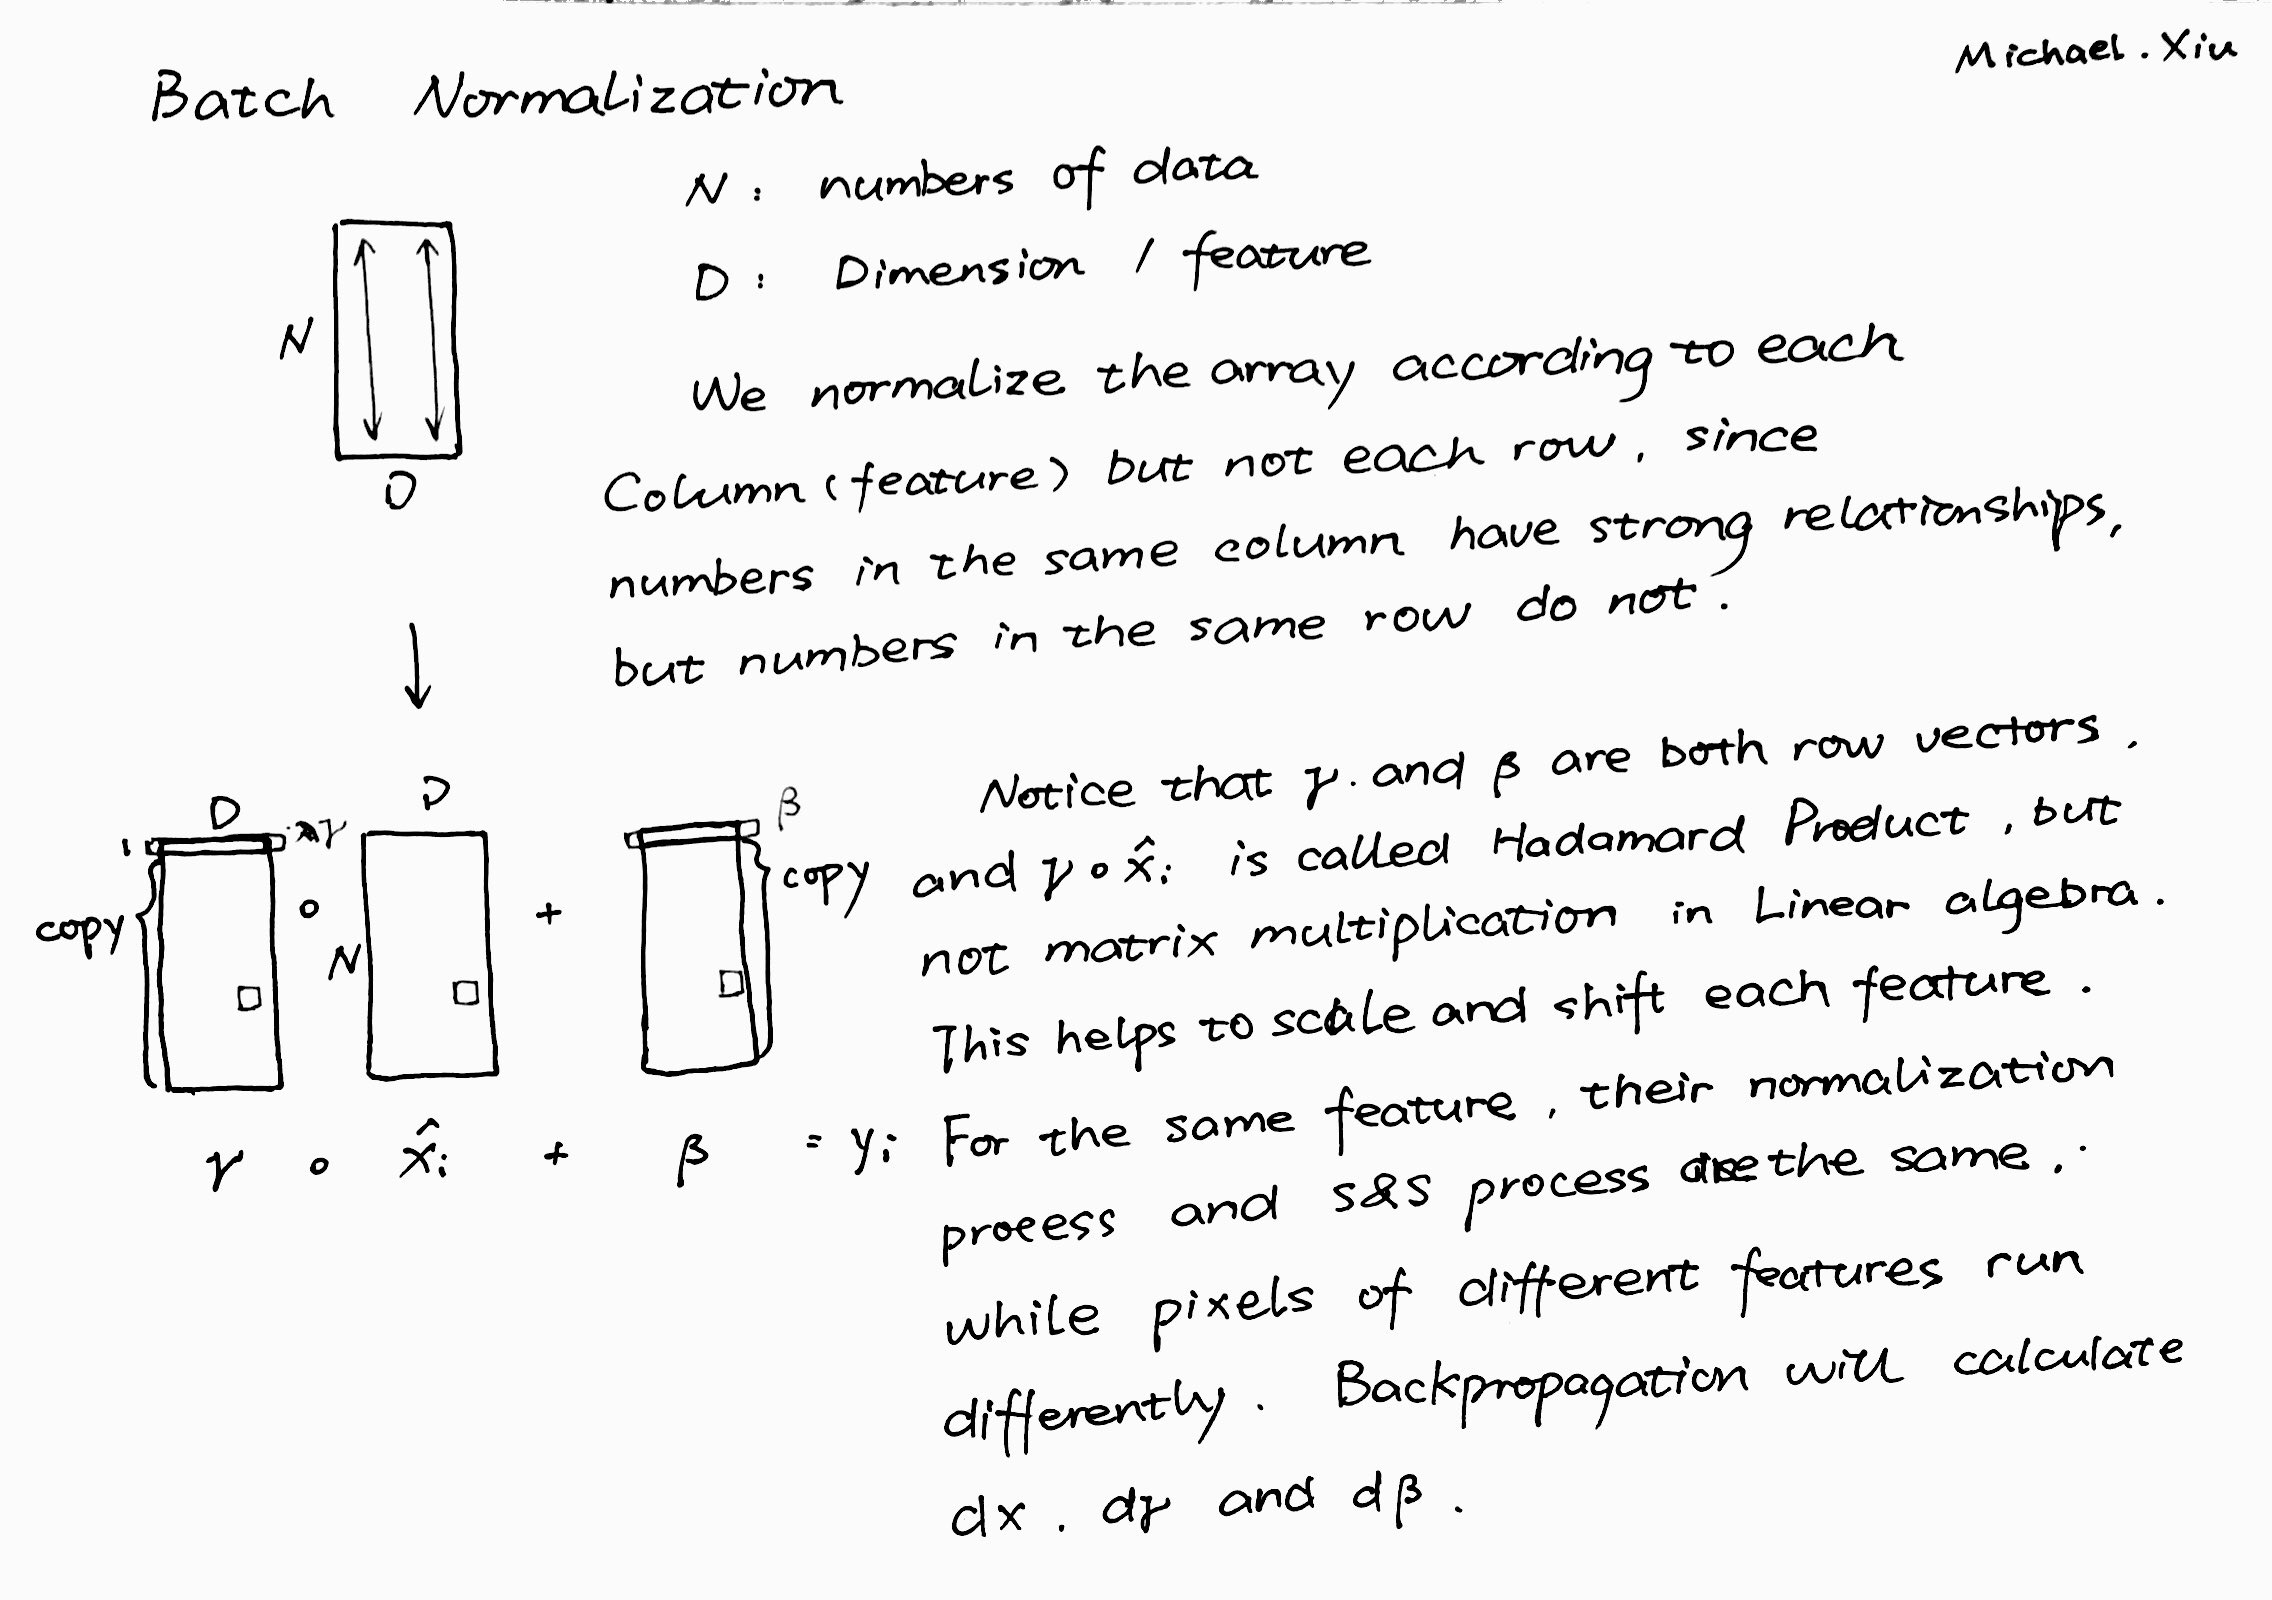 Michael. Xiu
Batch Normalization
N : numbers of data
D : Dimension / feature
N
D
We normalize the array according to each
Column (feature) but not each row, since
numbers in the same column have strong relationships,
but numbers in the same row do not.
D
1
γ
copy
D
N
β
copy
+
γ ∘ x̂i + β = yi
Notice that γ. and β are both row vectors.
and γ ∘ x̂i is called Hadamard Product, but
not matrix multiplication in Linear algebra.
This helps to scale and shift each feature.
For the same feature, their normalization
process and S&S process are the same,
while pixels of different features run
differently. Backpropagation will calculate
dx. dγ and dβ.